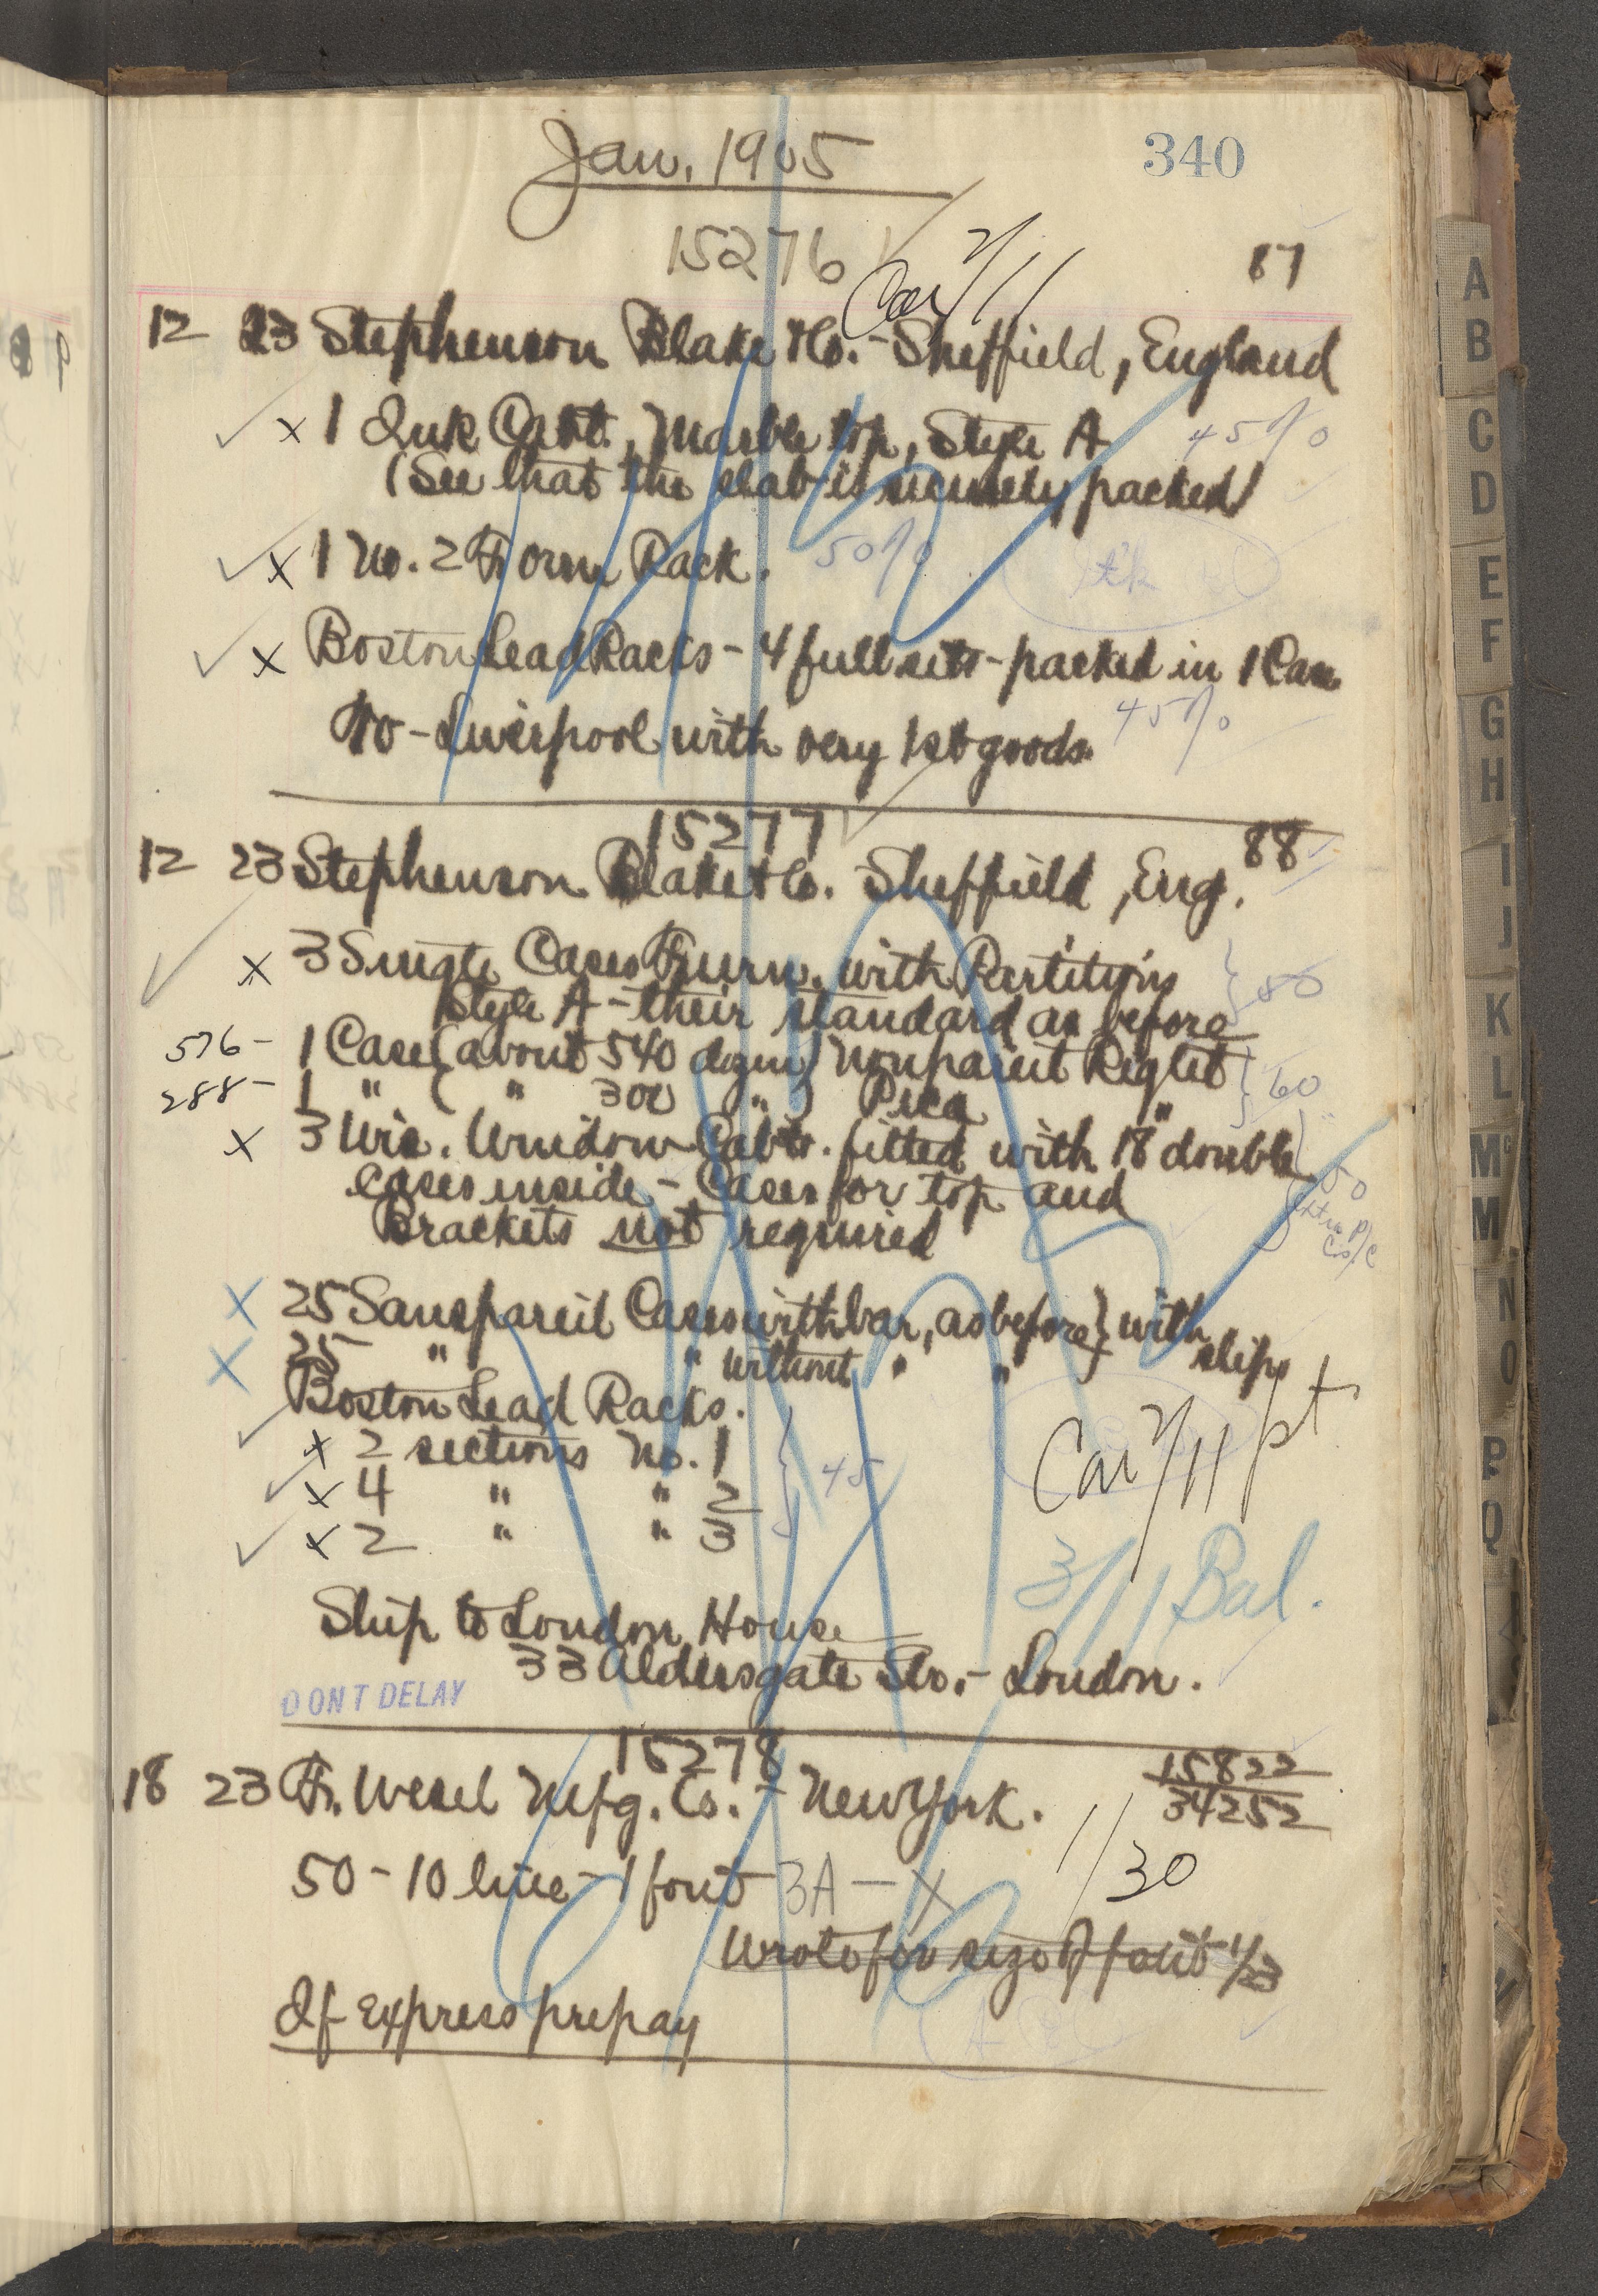 Jan. 1905
340
15276
Car 2/11
87
12 23 Stephenson Blake & Co. - Sheffield, England
x 1 Ink Cabt., Marble top, Style A 45%
(See that the slab is securely packed)
x 1 No. 2 Form Rack. 50%
x Boston Lead Racks - 4 full sets - packed in 1 Case
45%
To - Liverpool with very 1st goods.
15277
88
12 23 Stephenson Blake & Co. Sheffield, Eng.
x 3 Single Cases Furn. with Partitions
Style A - their standard as before
50
576 - 1 Case (about 540 dozen) Nonpareil Reglet
288 - 1 " ( " 300 " ) Pica "
60
x 3 Wis. Window Cabts. fitted with 18" double
cases inside - Cases for top and
Brackets not required
50
extra p/c
x 25 Sanspareil Cases with bar, as before } with
x 25 " " without " " slips
Boston Lead Racks.
x 2 sections No. 1
x 4 " " 2
x 2 " " 3
45
Car 2/11 pt
3/11 Bal.
Ship to London House
33 Aldersgate St. - London.
DONT DELAY
15278
15822
34252
18 23 F. Wesel Mfg. Co. - New York.
50 - 10 line - 1 font 3A - X
1/30
Wrote for size of font 1/23
If Express prepay
A
B
C
D
E
F
G
H
I
J
K
L
Mc
M
N
O
P
Q